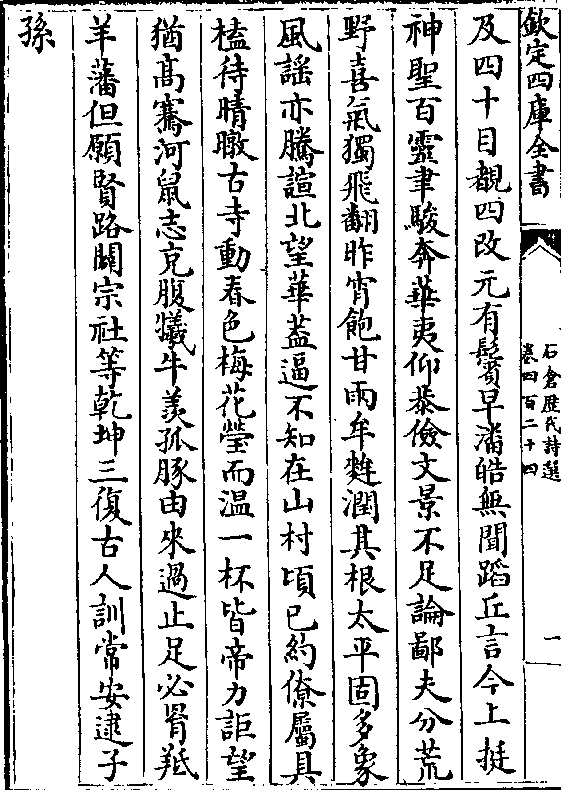 欽定四庫全書
石倉歴代詩選
卷四百二十四
一
及四十目覩四改元有鬢早潘皓無聞蹈丘言今上挺
神聖百靈聿駿奔華夷仰恭儉文景不足論鄙夫分荒
野喜氣獨飛翻昨宵飽甘雨牟麰潤其根太平固多象
風謡亦騰諠北望華葢逼不知在山村頃已約僚屬具
榼待晴暾古寺動春色梅花瑩而温一杯皆帝力詎望
猶髙騫河鼠志克腹犧牛羡孤豚由來過止足必胥羝
羊藩但願賢路闢宗社等乾坤三復古人訓常安逮子
孫